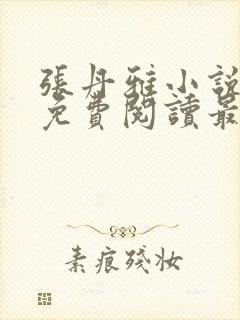 張丹雅小說
免費閱讀最
素痕殘妝